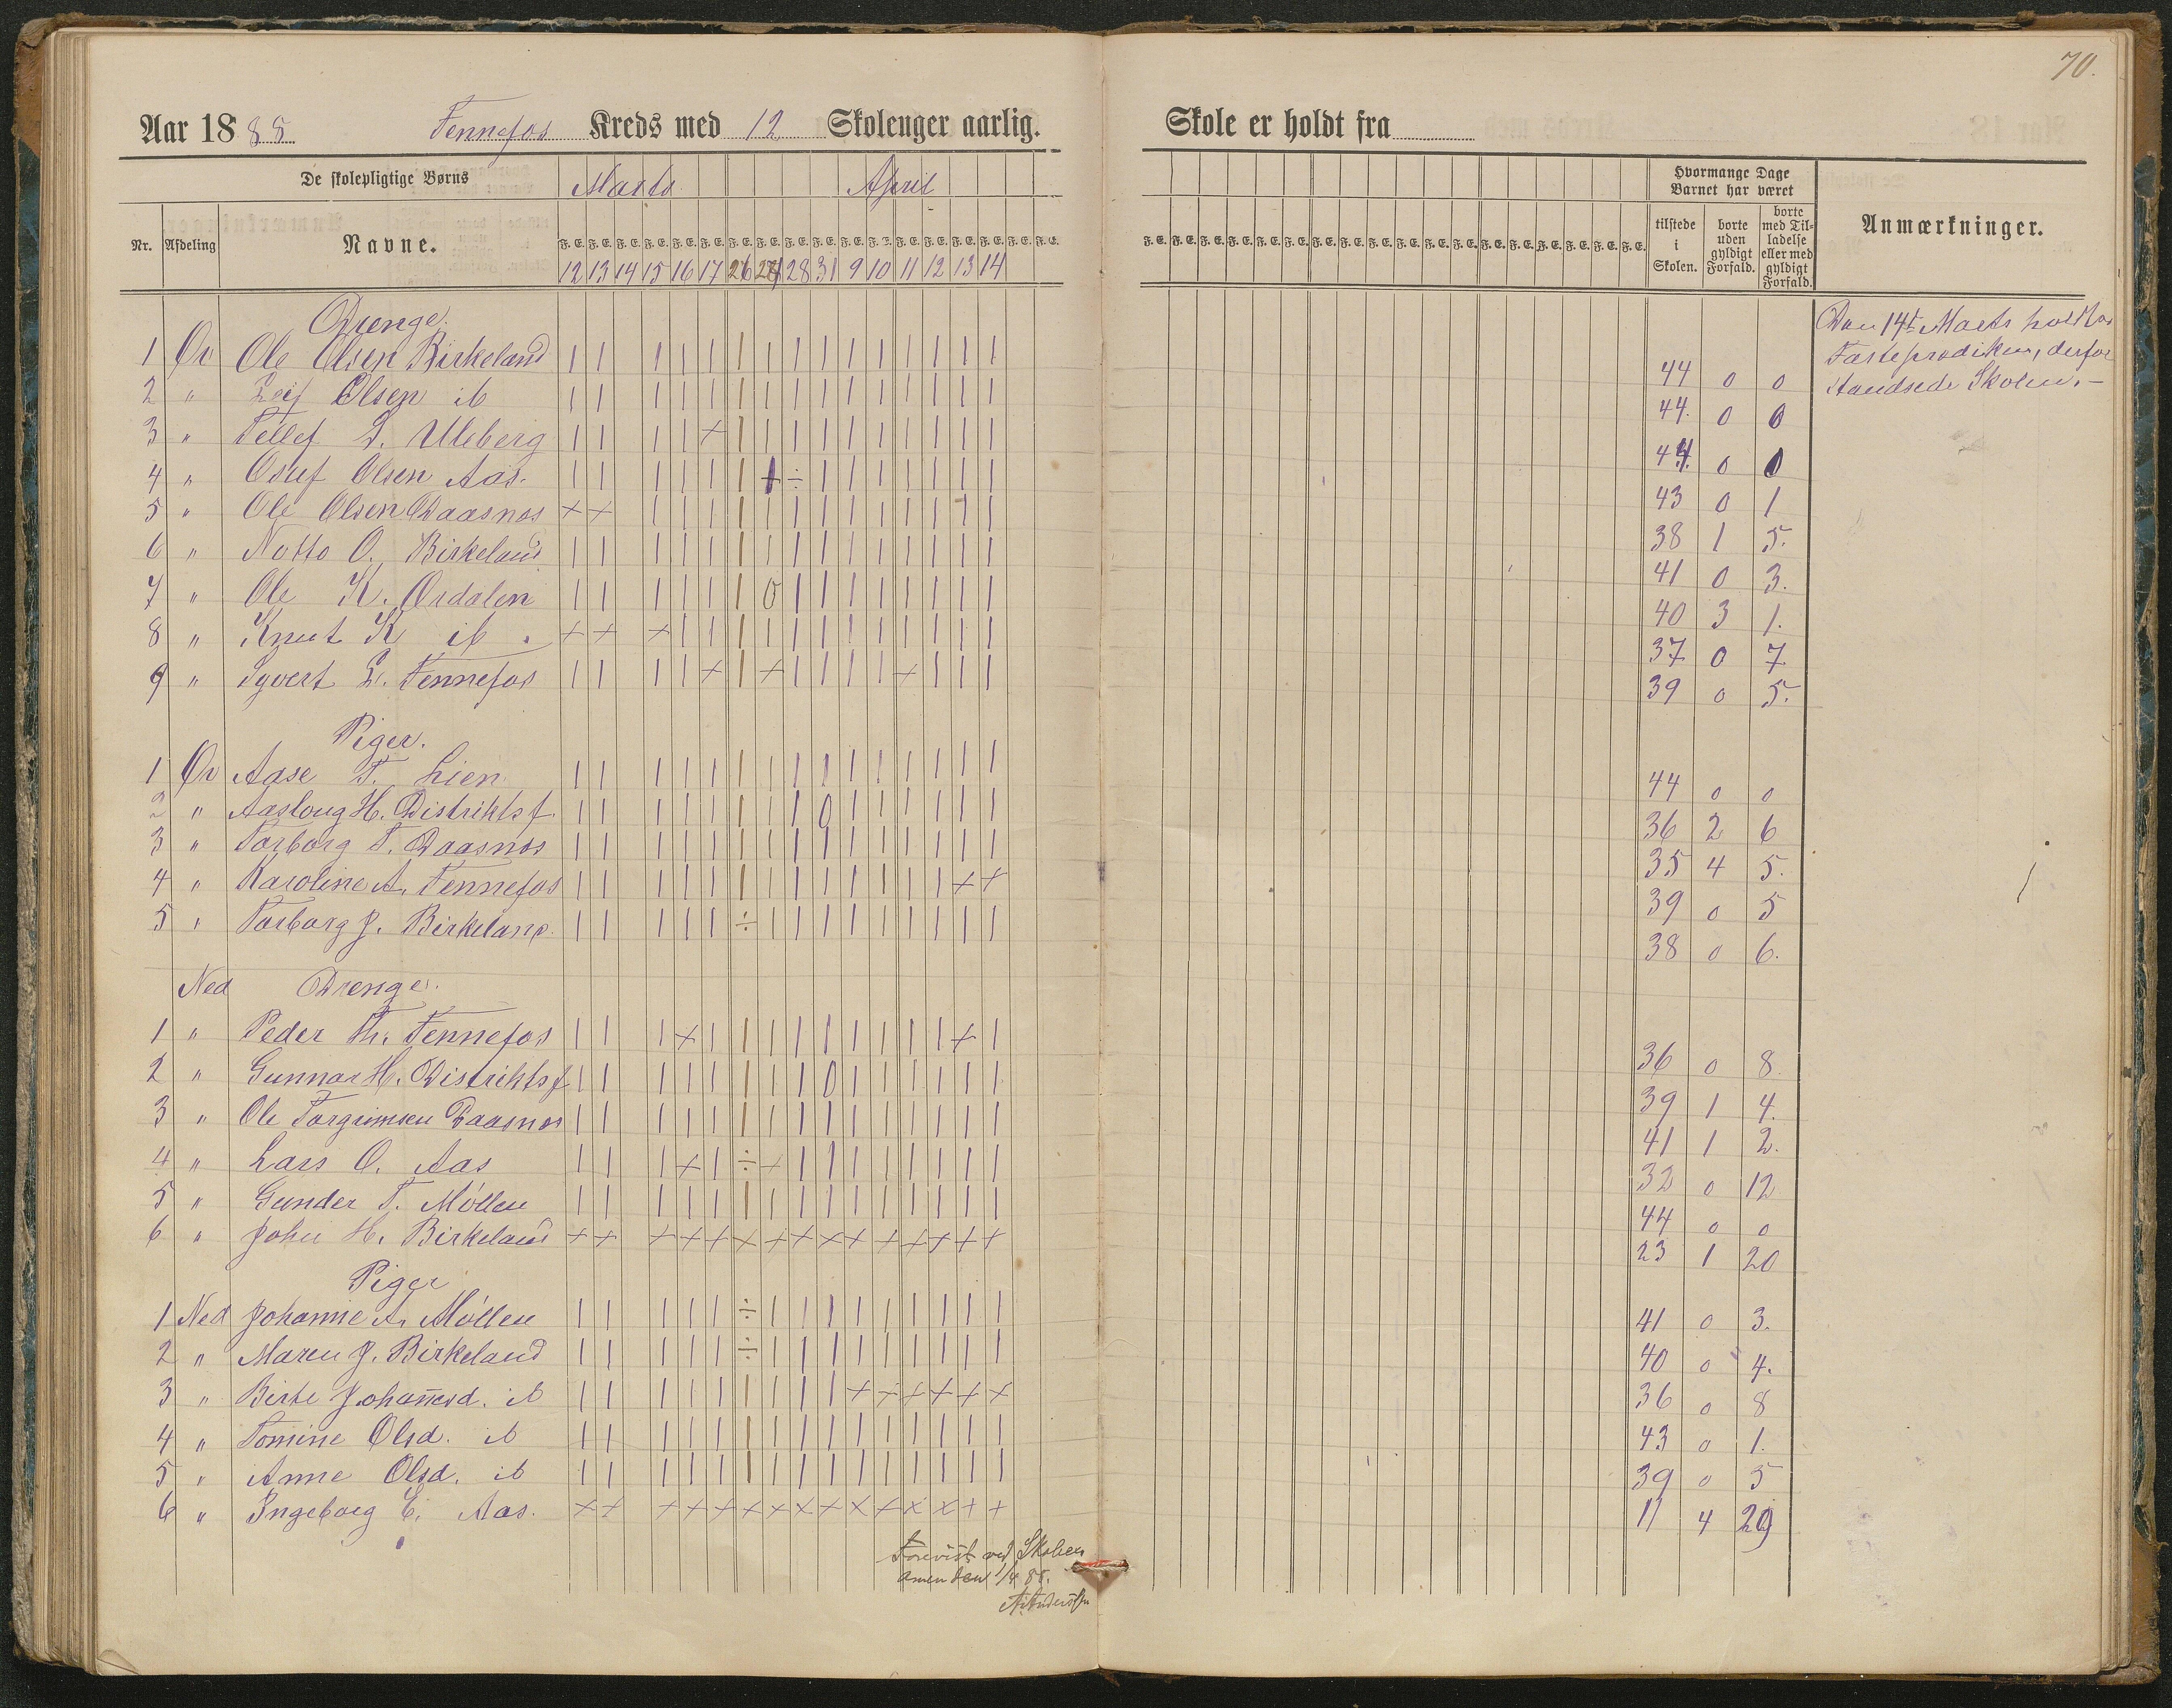 70.
Aar 1885. Fennefos Kreds med 12 Skoleuger aarlig. Skole er holdt fra
De skolepligtige Børns Marts April Hvormange Dage Barnet har været
Nr. Afdeling Navne. tilstede i Skolen. borte uden gyldigt Forfald. borte med Tilladelse eller med gyldigt Forfald. Anmærkninger.
F. E. F. E. F. E. F. E. F. E. F. E. F. E. F. E. F. E. F. E. F. E. F. E. F. E. F. E. F. E. F. E. F. E. F. E.
12 13 14 15 16 17 26 27 28 31 9 10 11 12 13 14
Drenge.
1 Øv Ole Olsen Birkeland | | | | | | | | | | | | | | | 44 0 0
2 " Leif Olsen ib | | | | | | | | | | | | | | | 44. 0 0
3 " Tellef S. Uleberg | | | | + | | | | | | | | | | 44. 0 0
4 " Osuf Olsen Aas. | | | | | | + ÷ | | | | | | | 43 0 1
5 " Ole Olsen Daasnos + + | | | | | | | | | | | | | 38 1 5.
6 " Notto O. Birkeland | | | | | | | | | | | | | | | 41 0 3.
7 " Ole K. Ordalen | | | | | | 0 | | | | | | | | 40 3 1.
8 " Knut K ib. + + + | | | | | | | | | | | | 37 0 7.
9 " Syvert L. Fennefos | | | | + | + | | | | + | | | 39 0 5.
Piger.
1 Øv Aase T. Lien | | | | | | | | | | | | | | | 44 0 0
2 " Aasloug H. Distriktsf. | | | | | | | | 0 | | | | | | 36 2 6
3 " Torborg T. Daasnos | | | | | | | | | | | | | | | 35 4 5.
4 " Karoline A. Fennefos | | | | | | | | | | | | | + + 39 0 5
5 " Torborg J. Birkeland. | | | | | ÷ | | | | | | | | | 38 0 6.
Ned Drenge.
1 " Peder Th. Fennefos | | | + | | | | | | | | | + | 36 0 8.
2 " Gunnar H. Distriktsf | | | | | | | | 0 | | | | | | 39 1 4.
3 " Ole Torgrimsen Daasnos | | | | | | | | | | | | | | | 41 1 2.
4 " Lars O. Aas | | | + | ÷ + | | | | | | | | 32 0 12
5 " Gunder T. Møllen | | | | | | | | | | | | | | | 44 0 0
6 " John H. Birkeland + + + + + + + + + + + + + + + 23 1 20
Piger
1 Ned Johanne A. Møllen | | | | | ÷ | | | | | | | | | 41 0 3.
2 " Maren J. Birkeland | | | | | ÷ | | | | | | | | | 40 0 4.
3 " Birte Johannesd. ib | | | | | | | | | + + + + + + 36 0 8
4 " Tomine Olsd. ib | | | | | | | | | | | | | | | 43 0 1.
5 " Anne Olsd. ib | | | | | | | | | | | | | | | 39 0 5
6 " Ingeborg E. Aas. + + + + + + + + + + + + + + + 11 4 29
Den 14de Marts holdtes
Fasteprædiken, derfor
standsede Skolen. –
Forevist ved Skolen